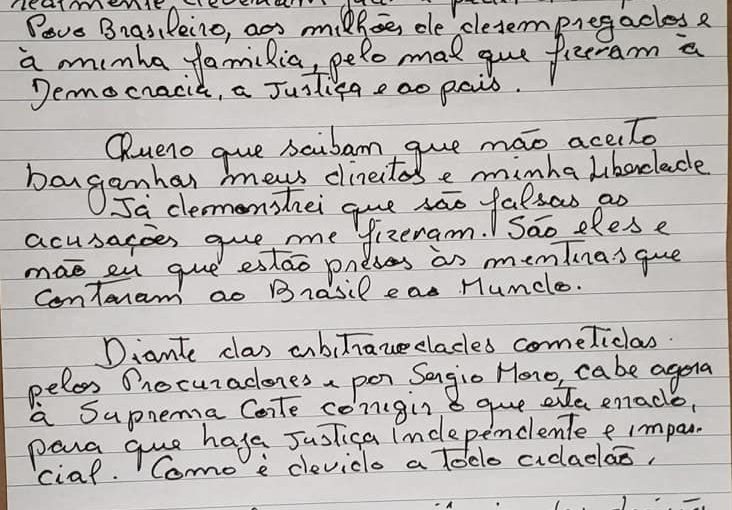 realmente deveriam
Povo Brasileiro, aos milhões de desempregados e
à minha familia, pelo mal que fizeram à
Democracia, a Justiça e ao país.
Quero que saibam que não aceito
barganhar meus direitos e minha Liberdade
Já demonstrei que são falsas as
acusações que me fizeram. São eles e
não eu que estão presos às mentiras que
Contaram ao Brasil e ao Mundo.
Diante das arbitrariedades cometidas
pelos Procuradores e por Sergio Moro, cabe agora
à Suprema Corte corrigir o que está errado,
para que haja Justiça independente e impar-
cial. Como é devido a todo cidadão.